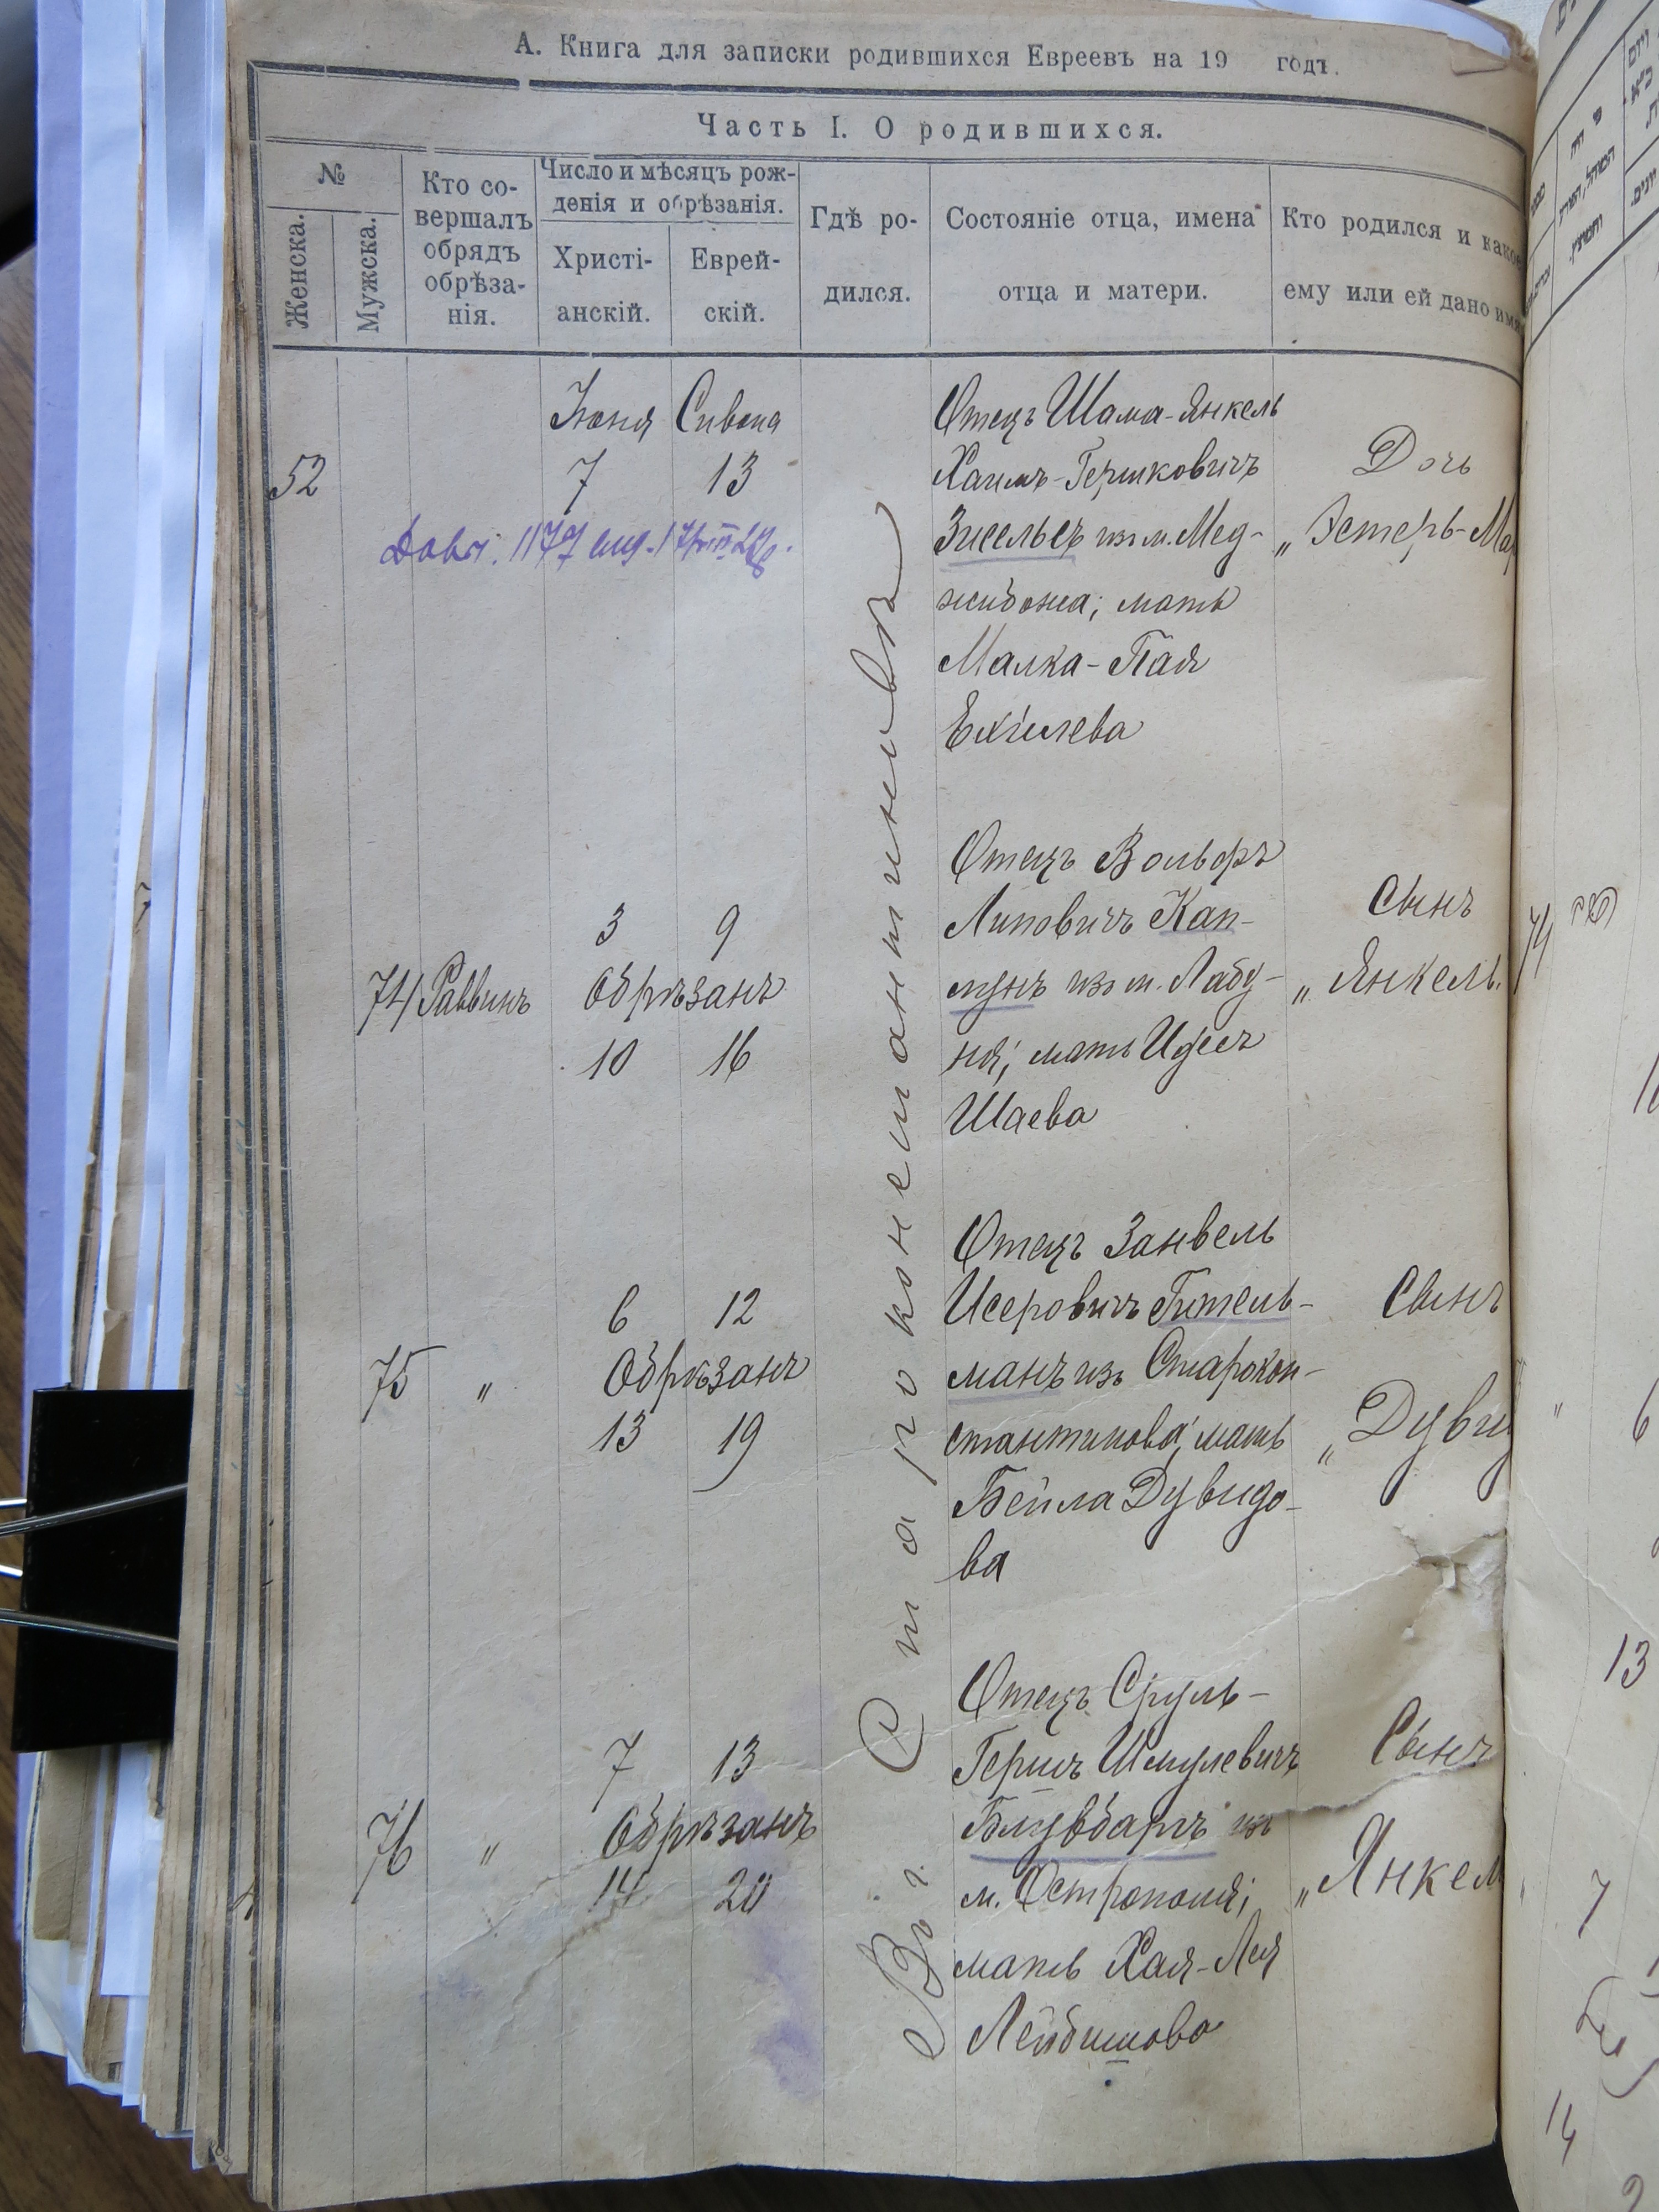 А. Книга для записки родившихся Евреевъ на 19 годъ.
Часть I. О родившихся.
№
Женска.
Мужска.
Кто со-
вершалъ
обрядъ
обрѣза-
нія.
Число и мѣсяцъ рож-
денія и обрѣзанія.
Христі-
анскій.
Еврей-
скій.
Гдѣ ро-
дился.
Состояніе отца, имена
отца и матери.
Кто родился и какое
ему или ей дано имя
Іюня Сивана
52 7 13
Отецъ Шама-Янкель
Хаимъ-Гершковичъ
Зисельсъ изъ м. Мед-
жибожа; мать
Малка-Пая
Ехілева
Дочь
„Эстеръ-Ма
Въ г. Староконстантиновѣ
74 Раввинъ
3 9
Обрѣзанъ
10 16
Отецъ Вольфъ
Липовичъ Кап-
лунъ изъ м. Лабу-
ня; мать Идесъ
Шаева
Сынъ
„Янкель.
75 „
6 12
Обрѣзанъ
13 19
Отецъ Занвель
Исеровичъ Гитель-
манъ изъ Старокон-
стантинова; мать
Бейла Дувидо-
ва
Сынъ
„Дуви
76 „
7 13
Обрѣзанъ
14 20
Отецъ Сруль-
Гершъ Шмулевичъ
из
м. Острополя;
мать Хая-Лея
Лейбишова
Сынъ
„Янкел
74
6
13
7
14